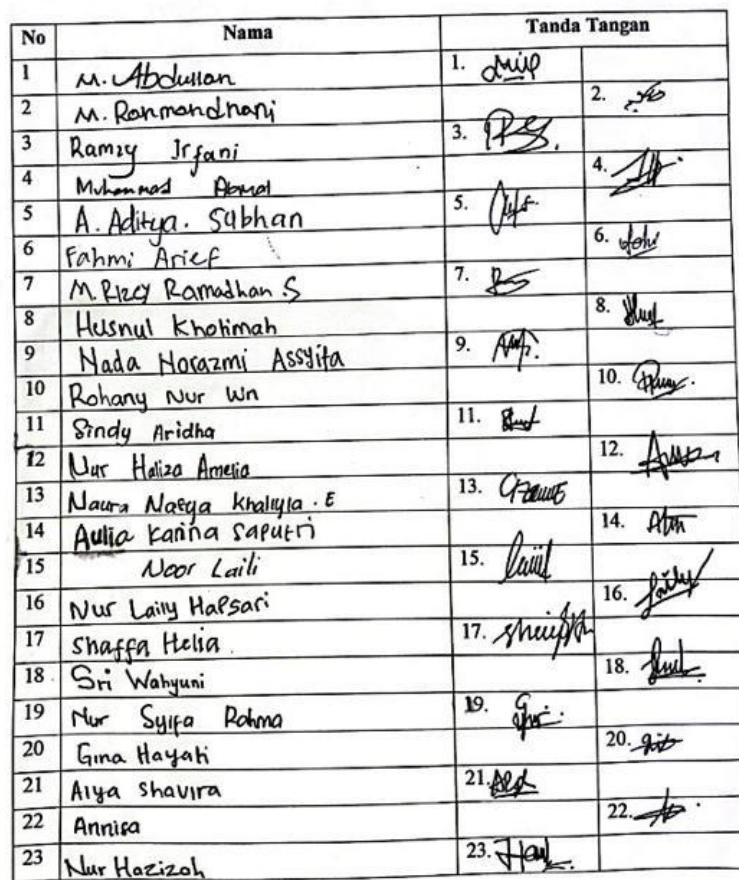 No Nama Tanda Tangan
1 M. Abdullah 1.
2 M. Ranmandhani 2.
3 Ramzy Irfani 3.
4 Muhammad 4.
5 A. Aditya. Subhan 5.
6 Fahmi Arief 6.
7 M. Rizcy Ramadhan. S 7.
8 Husnul Khotimah 8.
9 Nada Norazmi Assyifa 9.
10 Rohany Nur Wn 10.
11 Sindy Aridha 11.
12 Nur Haliza Amelia 12.
13 Naura Nafya Khaliyla. E 13.
14 Aulia Karina Saputri 14.
15 Noor Laili 15.
16 Nur Laily Hafsari 16.
17 Shaffa Helia 17.
18 Sri Wahyuni 18.
19 Nur Syifa Rahma 19.
20 Gina Hayati 20.
21 Alya Shavira 21.
22 Annisa 22.
23 Nur Hazizah 23.